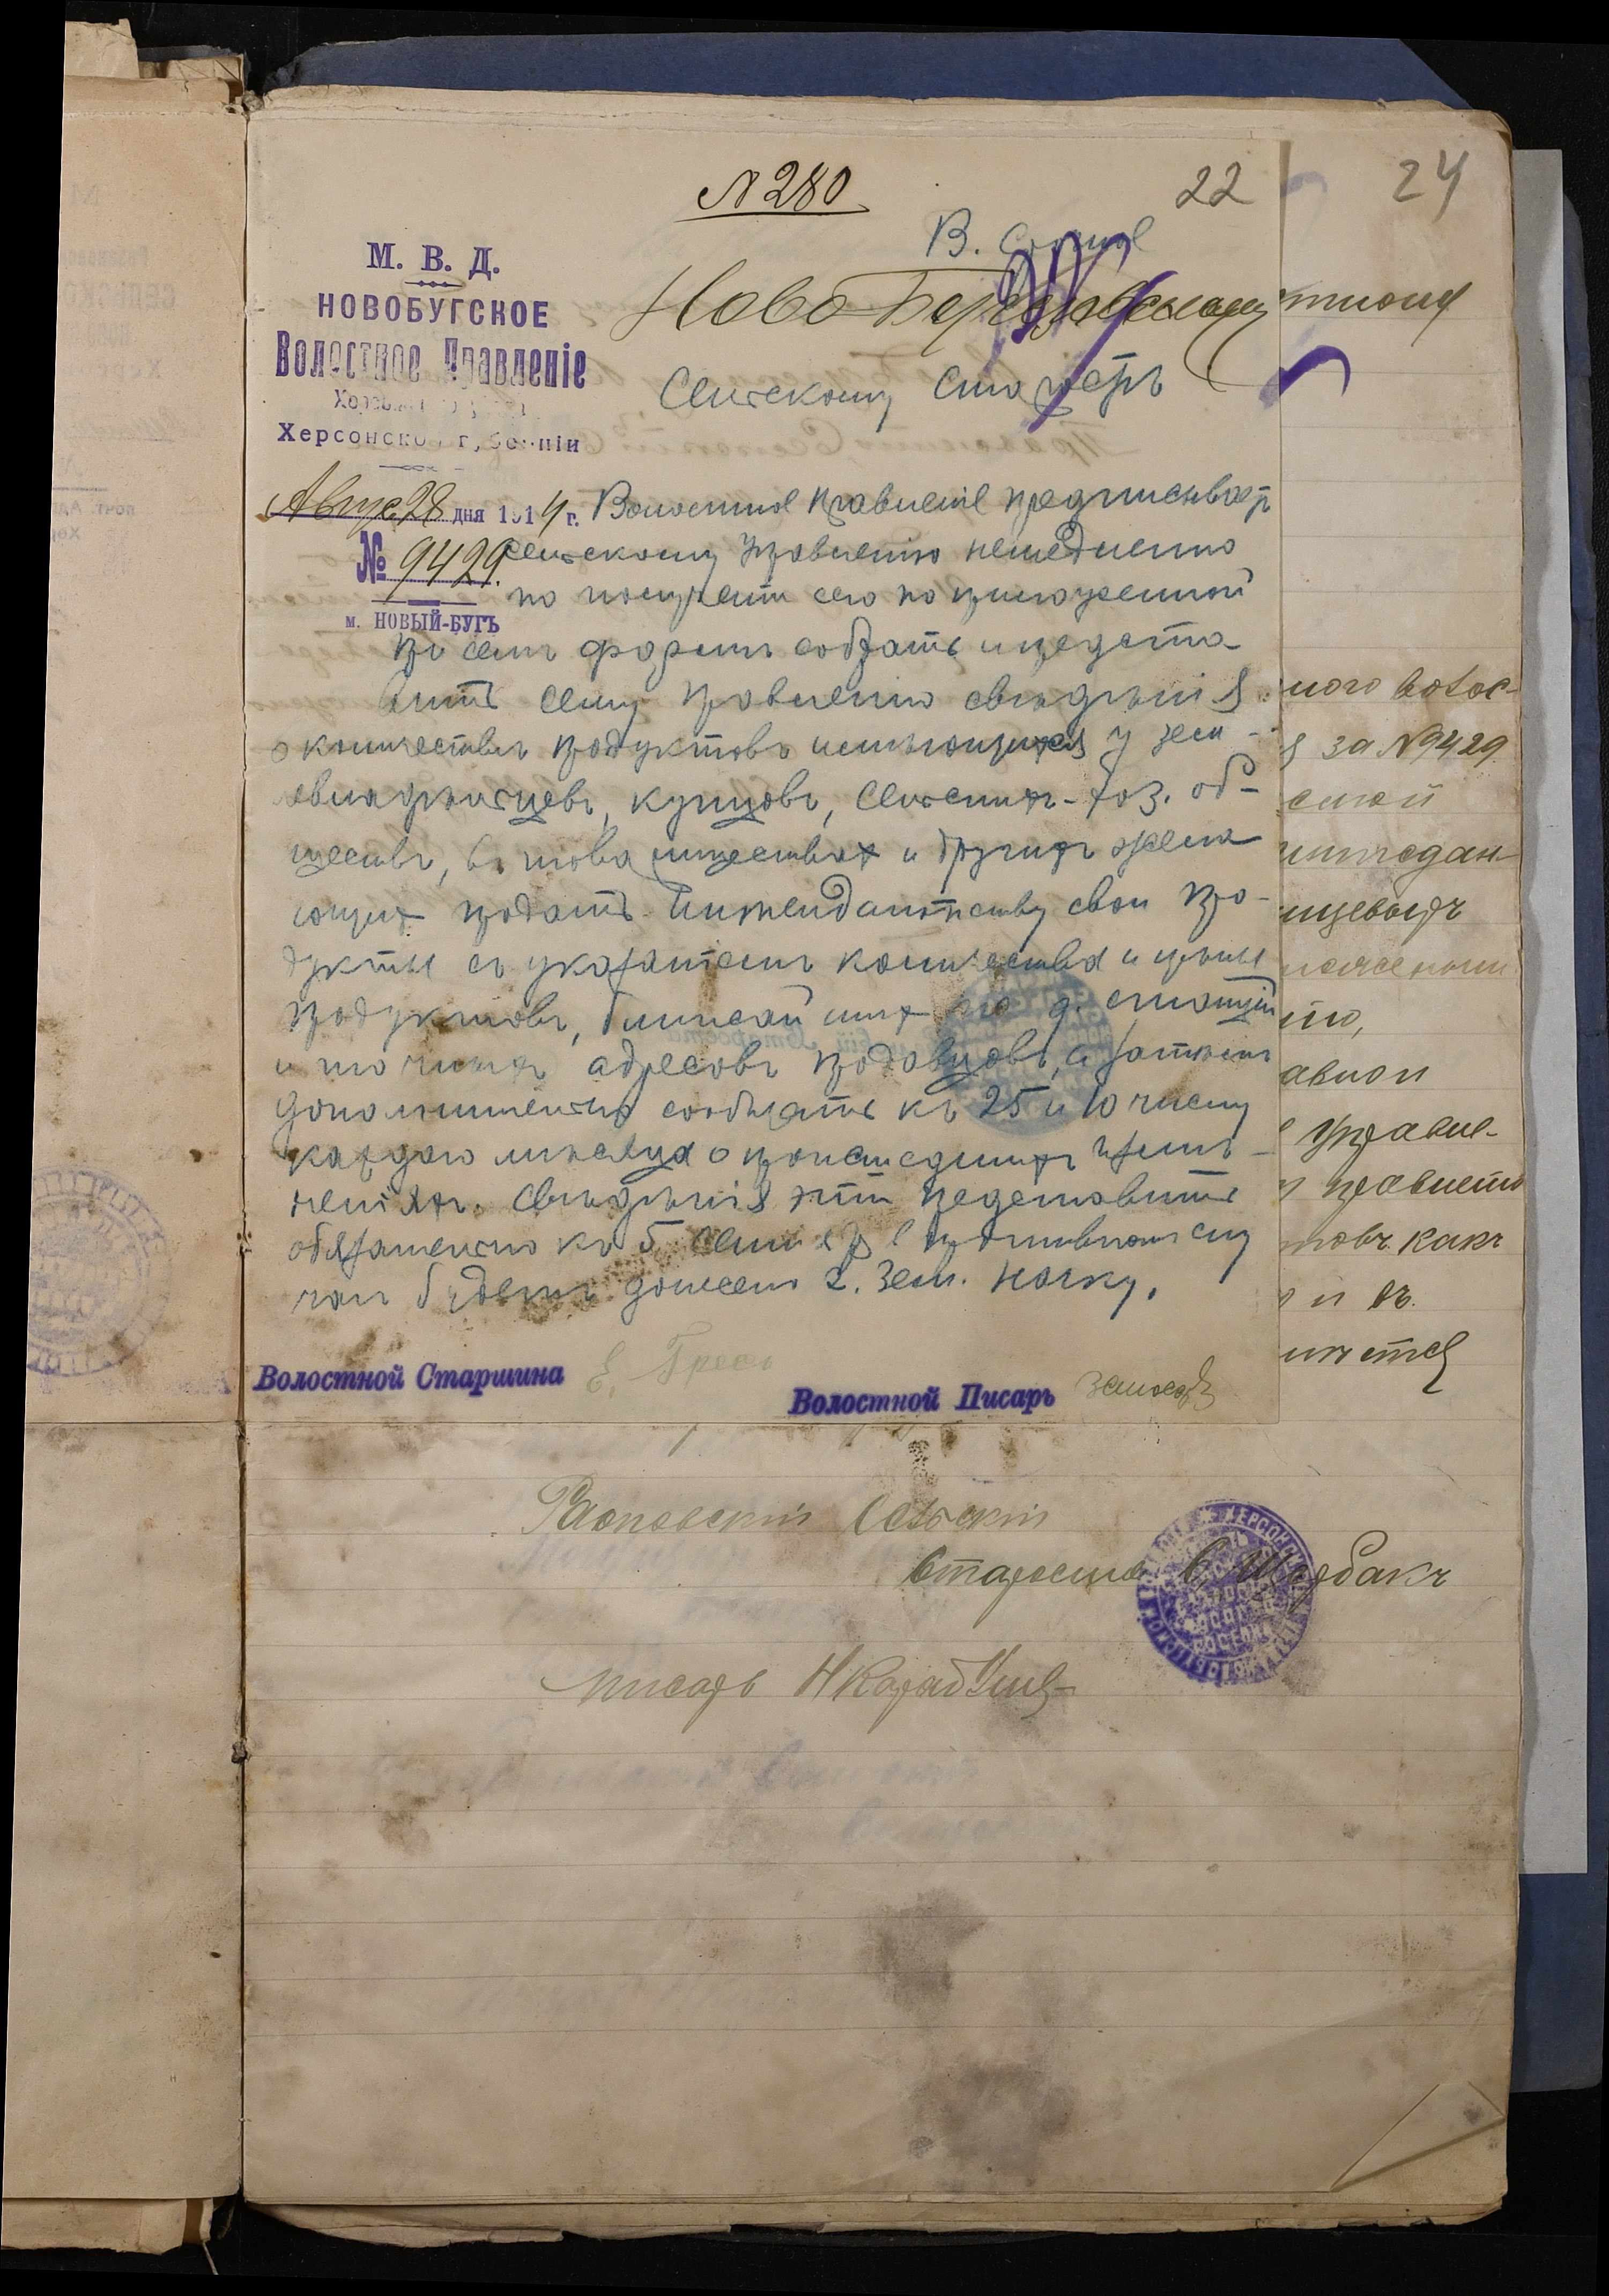 № 280
22
24
В. Срочно
М. В. Д.
НОВОБУГСКОЕ
Волостное Правленіе
Херсонской губерніи
Ново-
Сельскому Старостѣ
Август 28 дня 1914 г.
№ 9429.
м. НОВЫЙ-БУГЪ
Волостное Правленіе предписываетъ
сельскому Управленію немедленно
по полученіи сего по приложенной
при семъ формѣ собрать и предста-
вить сему правленію свѣдѣнія
о количествѣ продуктовъ имѣющихся у зем-
левладѣльцевъ, купцовъ, сельскихъ-хоз. об-
ществъ, въ товариществах и другихъ жела
ющих продать Интендантству свои про-
дукты съ указаніемъ количества и цѣны
продуктовъ, ближайших ж. д. станцій
и точныхъ адресовъ продавцовъ, а затѣмъ
дополнительно сообщать къ 25 и 10 числу
каждаго мѣсяца о происшедшихъ измѣ-
неніяхъ. Свѣдѣнія эти представить
обязательно къ 5 Сентября в противномъ слу
чаѣ будетъ донесено г. Зем. Начку.
Волостной Старшина
Волостной Писарь
ного волос-
я за № 9429
интендан-
ищевыхъ
Управле-
правленіи
товъ какъ
и въ
имѣется
Сельскій
Староста С Щербакъ
Писарь Н